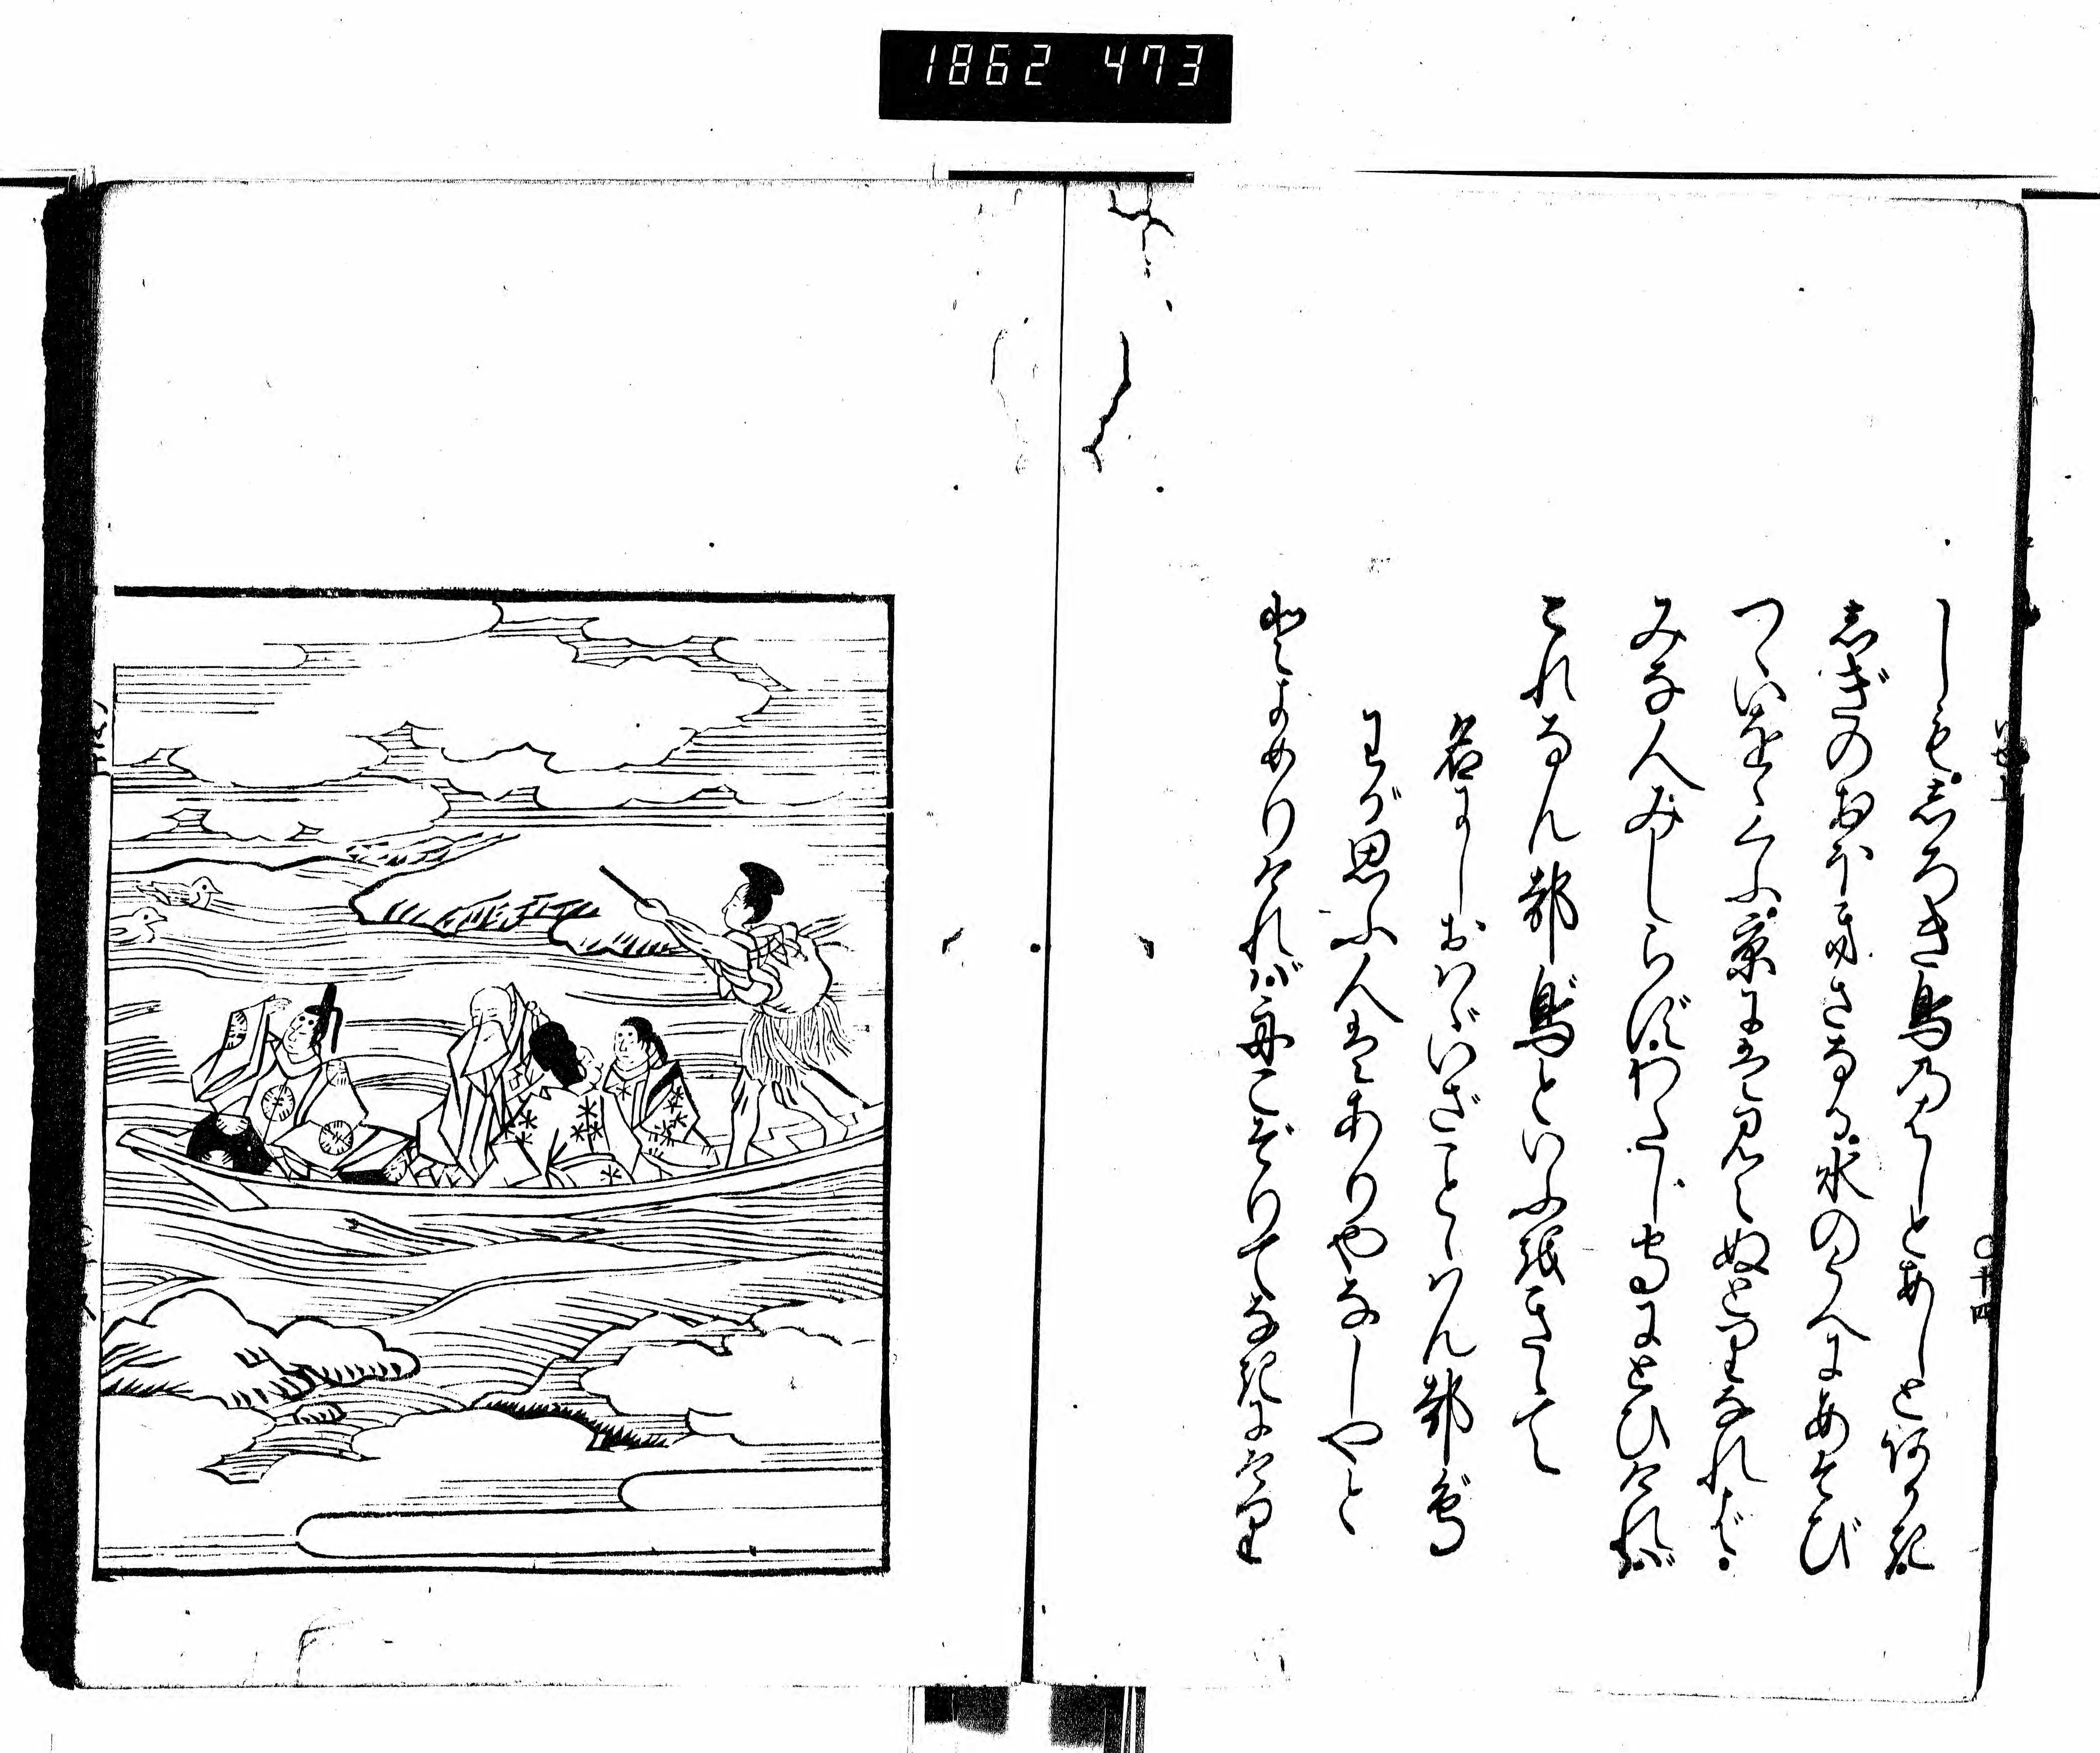 1862 473
しも。志ろき鳥乃はしとあしとあかき。
志ぎのおほきさなる。水のうへにあそび
つゝいをゝくふ。京には見えぬとりなれば。
みな人みしらず。わたしもりにとひければ
これなん都鳥といふをきゝて
名にしおはゞいざことゝはん都鳥
わが思ふ人はありやなしやと
とよめりければ舟こぞりてなきにけり
〇十四